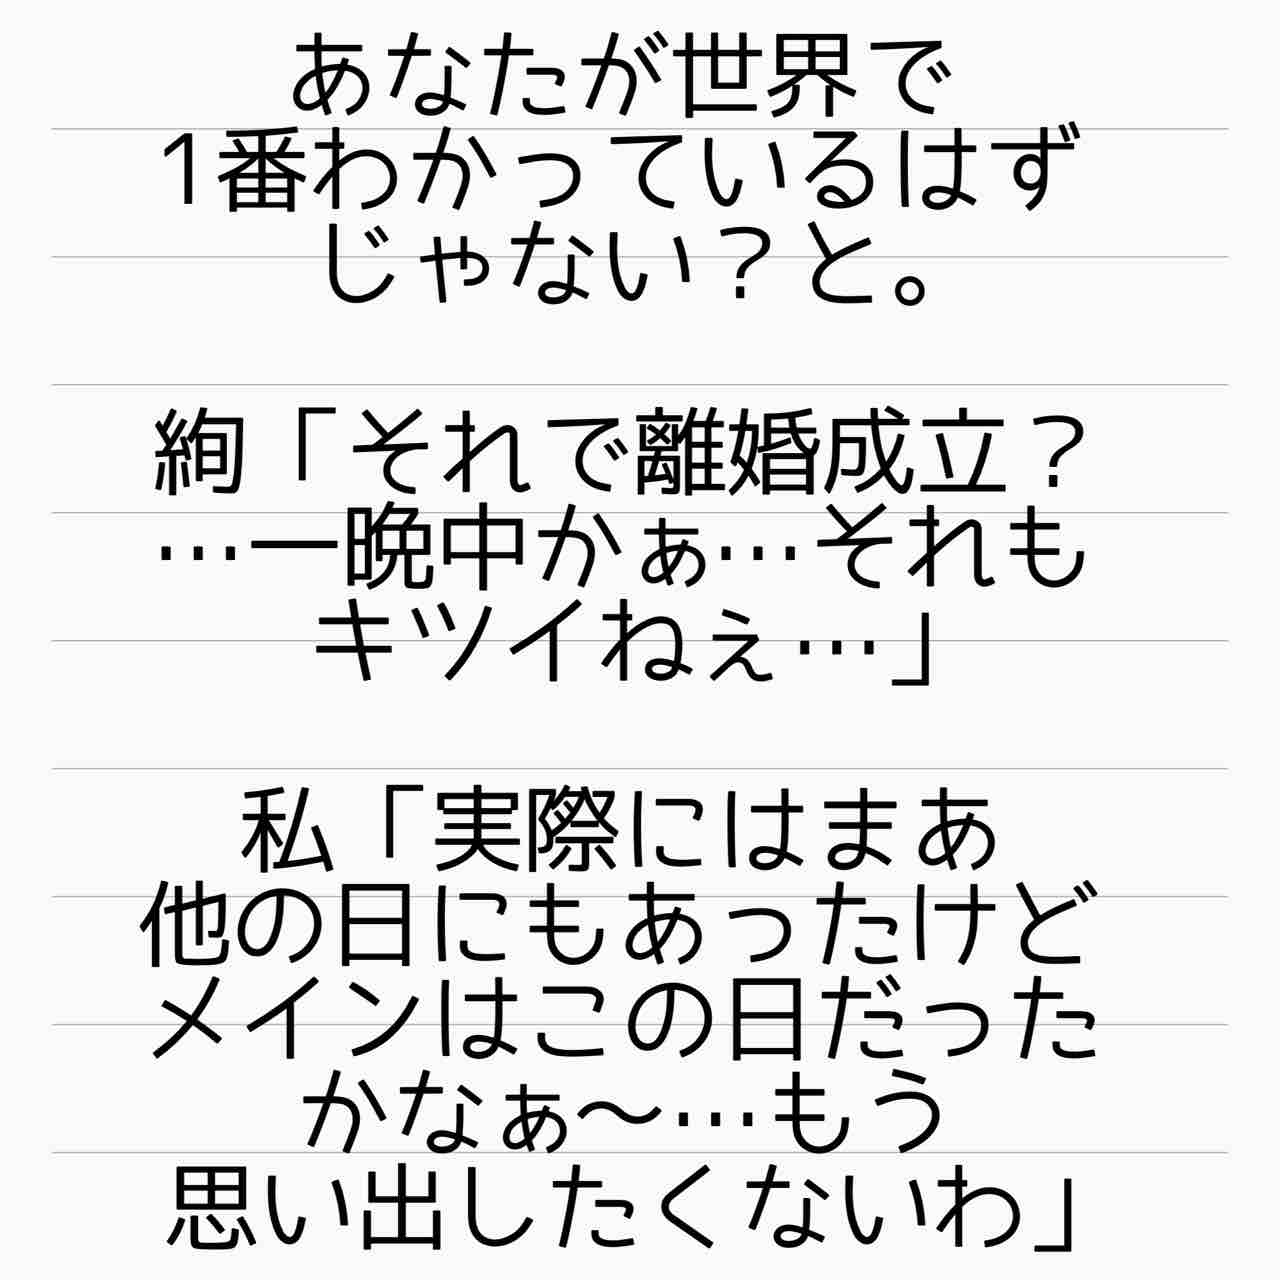 あなたが世界で
1番わかっているはず
じゃない？と。
絢「それで離婚成立？
…一晩中かぁ…それも
キツイねぇ…」
私「実際にはまあ
他の日にもあったけど
メインはこの日だった
かなぁ〜…もう
思い出したくないわ」